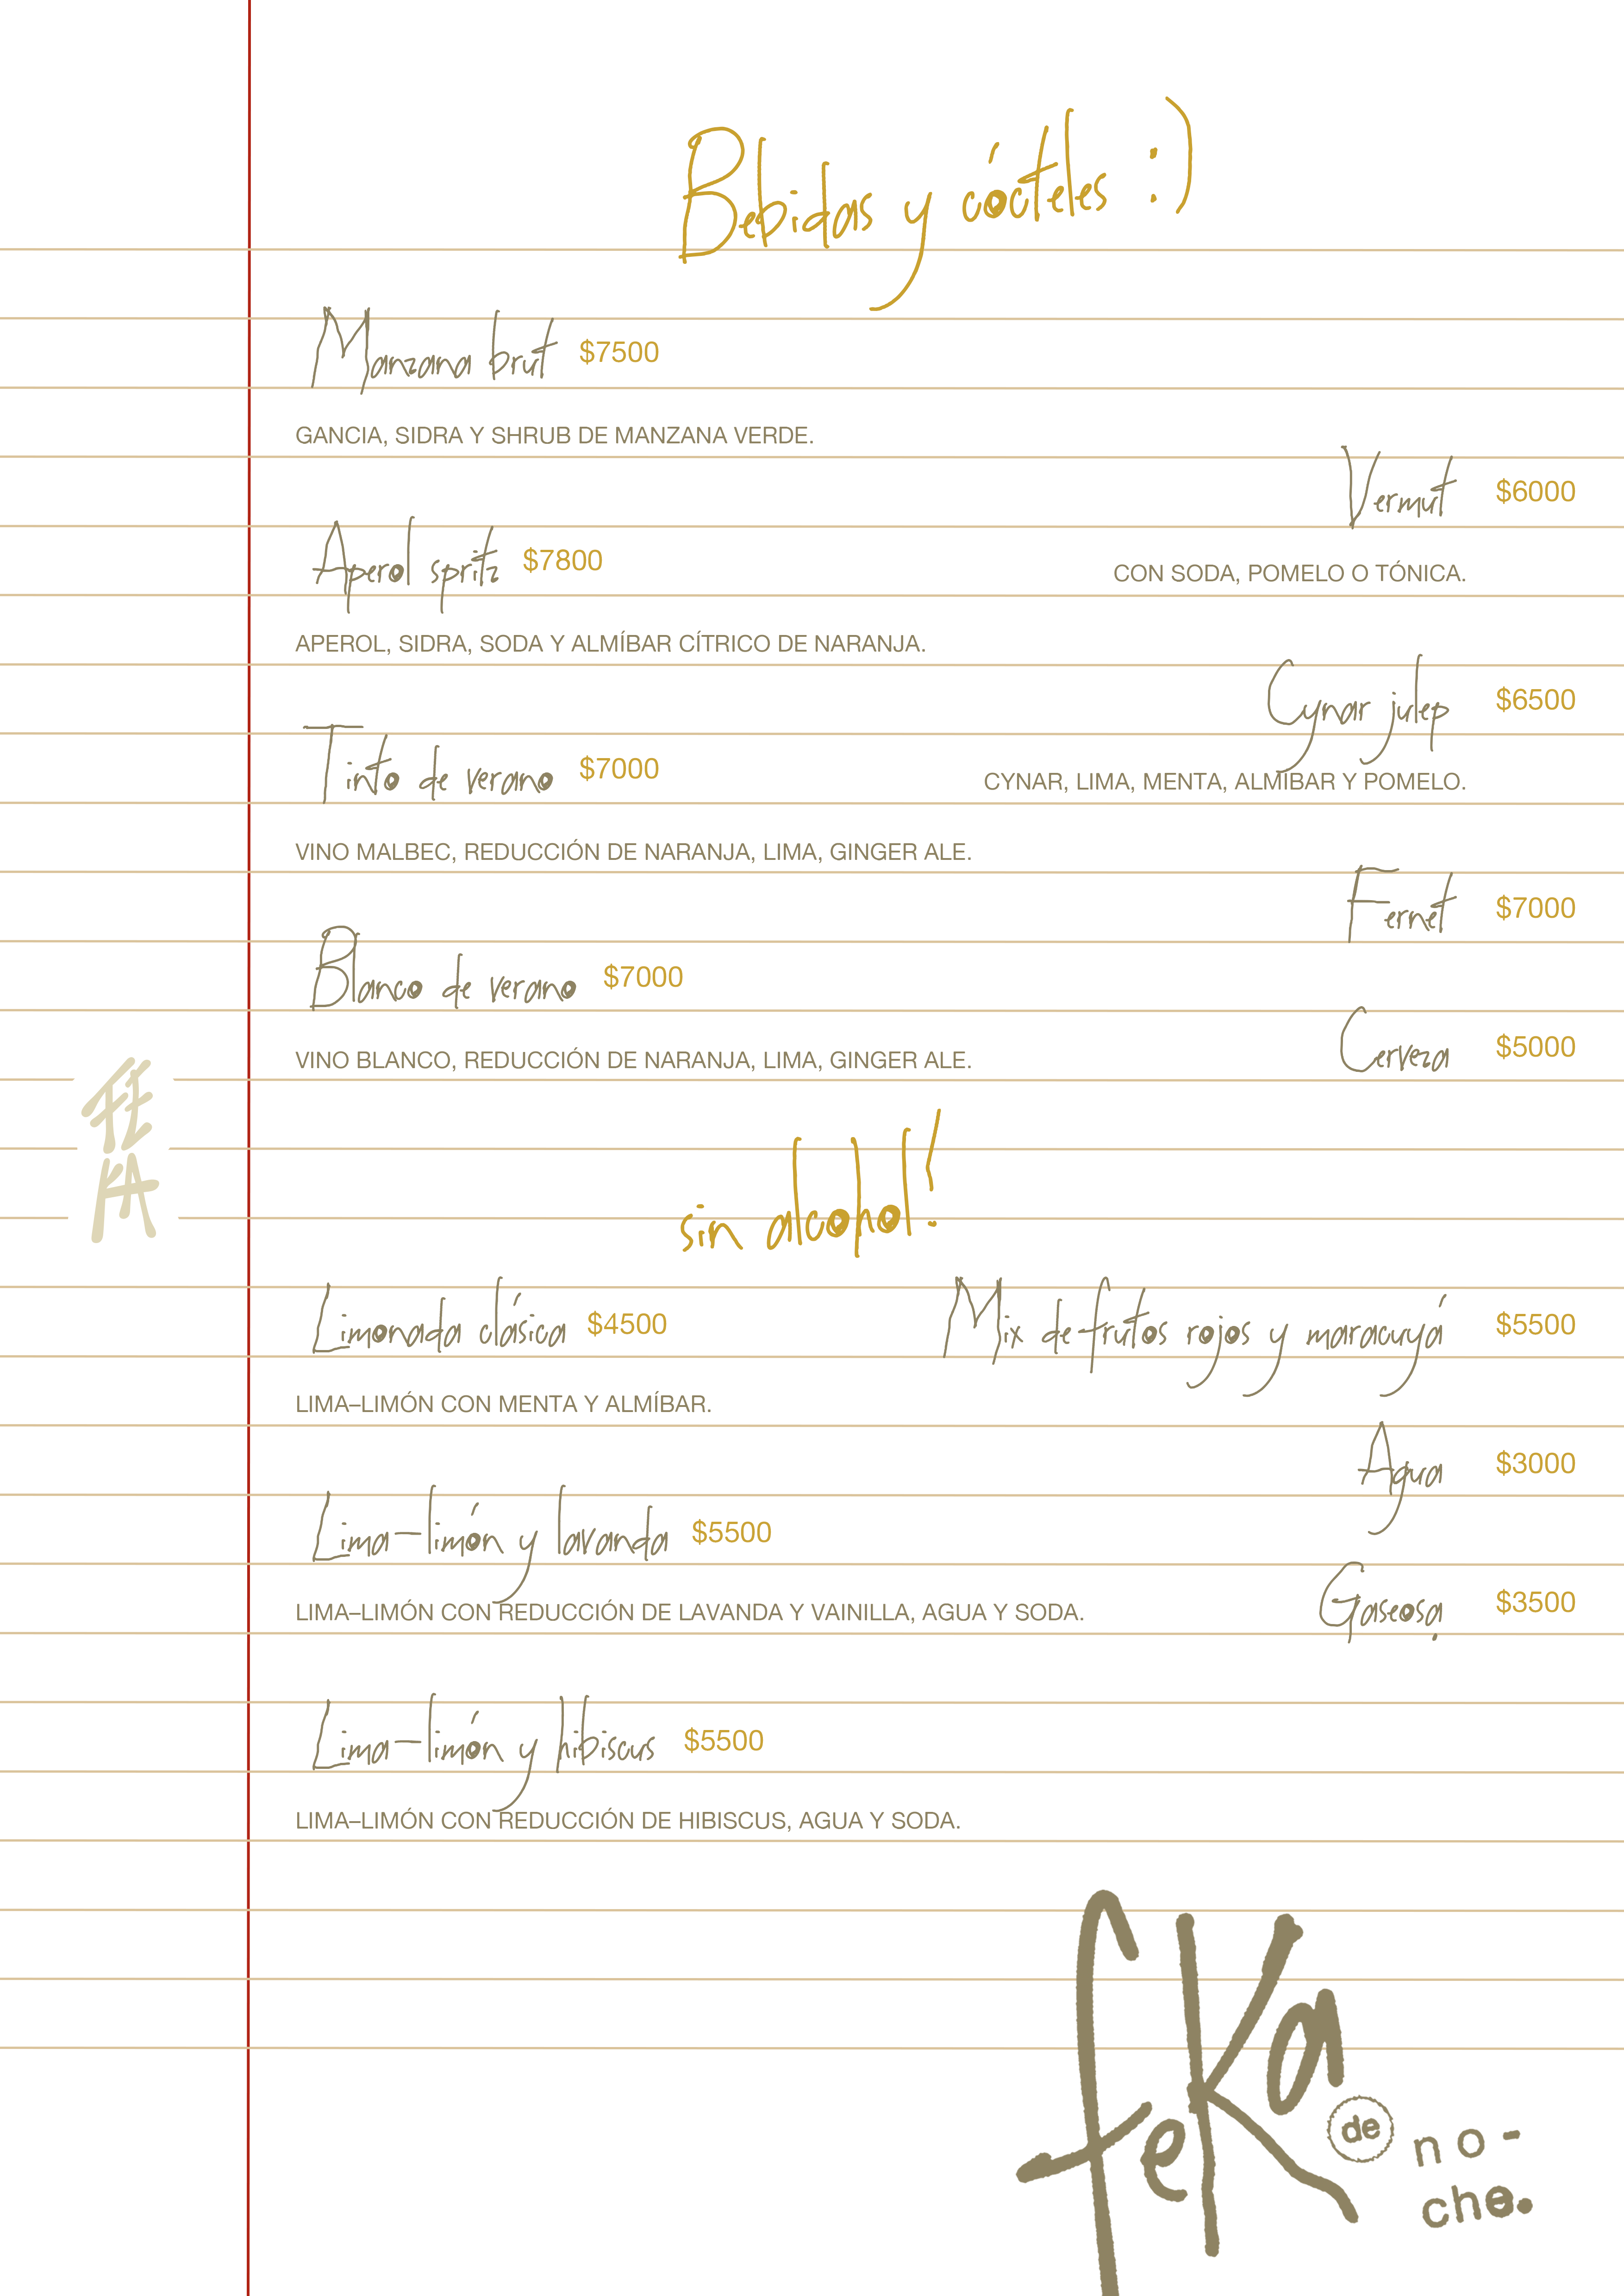 Bebidas y cócteles :)
Manzana brut $7500
GANCIA, SIDRA Y SHRUB DE MANZANA VERDE.
Aperol spritz $7800
APEROL, SIDRA, SODA Y ALMÍBAR CÍTRICO DE NARANJA.
Tinto de verano $7000
VINO MALBEC, REDUCCIÓN DE NARANJA, LIMA, GINGER ALE.
Blanco de verano $7000
VINO BLANCO, REDUCCIÓN DE NARANJA, LIMA, GINGER ALE.
Vermut $6000
CON SODA, POMELO O TÓNICA.
Cynar julep $6500
CYNAR, LIMA, MENTA, ALMÍBAR Y POMELO.
Fernet $7000
Cerveza $5000
FEKA
sin alcohol!
Limonada clásica $4500
LIMA–LIMÓN CON MENTA Y ALMÍBAR.
Lima–limón y lavanda $5500
LIMA–LIMÓN CON REDUCCIÓN DE LAVANDA Y VAINILLA, AGUA Y SODA.
Lima–limón y hibiscus $5500
LIMA–LIMÓN CON REDUCCIÓN DE HIBISCUS, AGUA Y SODA.
Mix de frutos rojos y maracuyá $5500
Agua $3000
Gaseosa $3500
feKa
de no-
che.